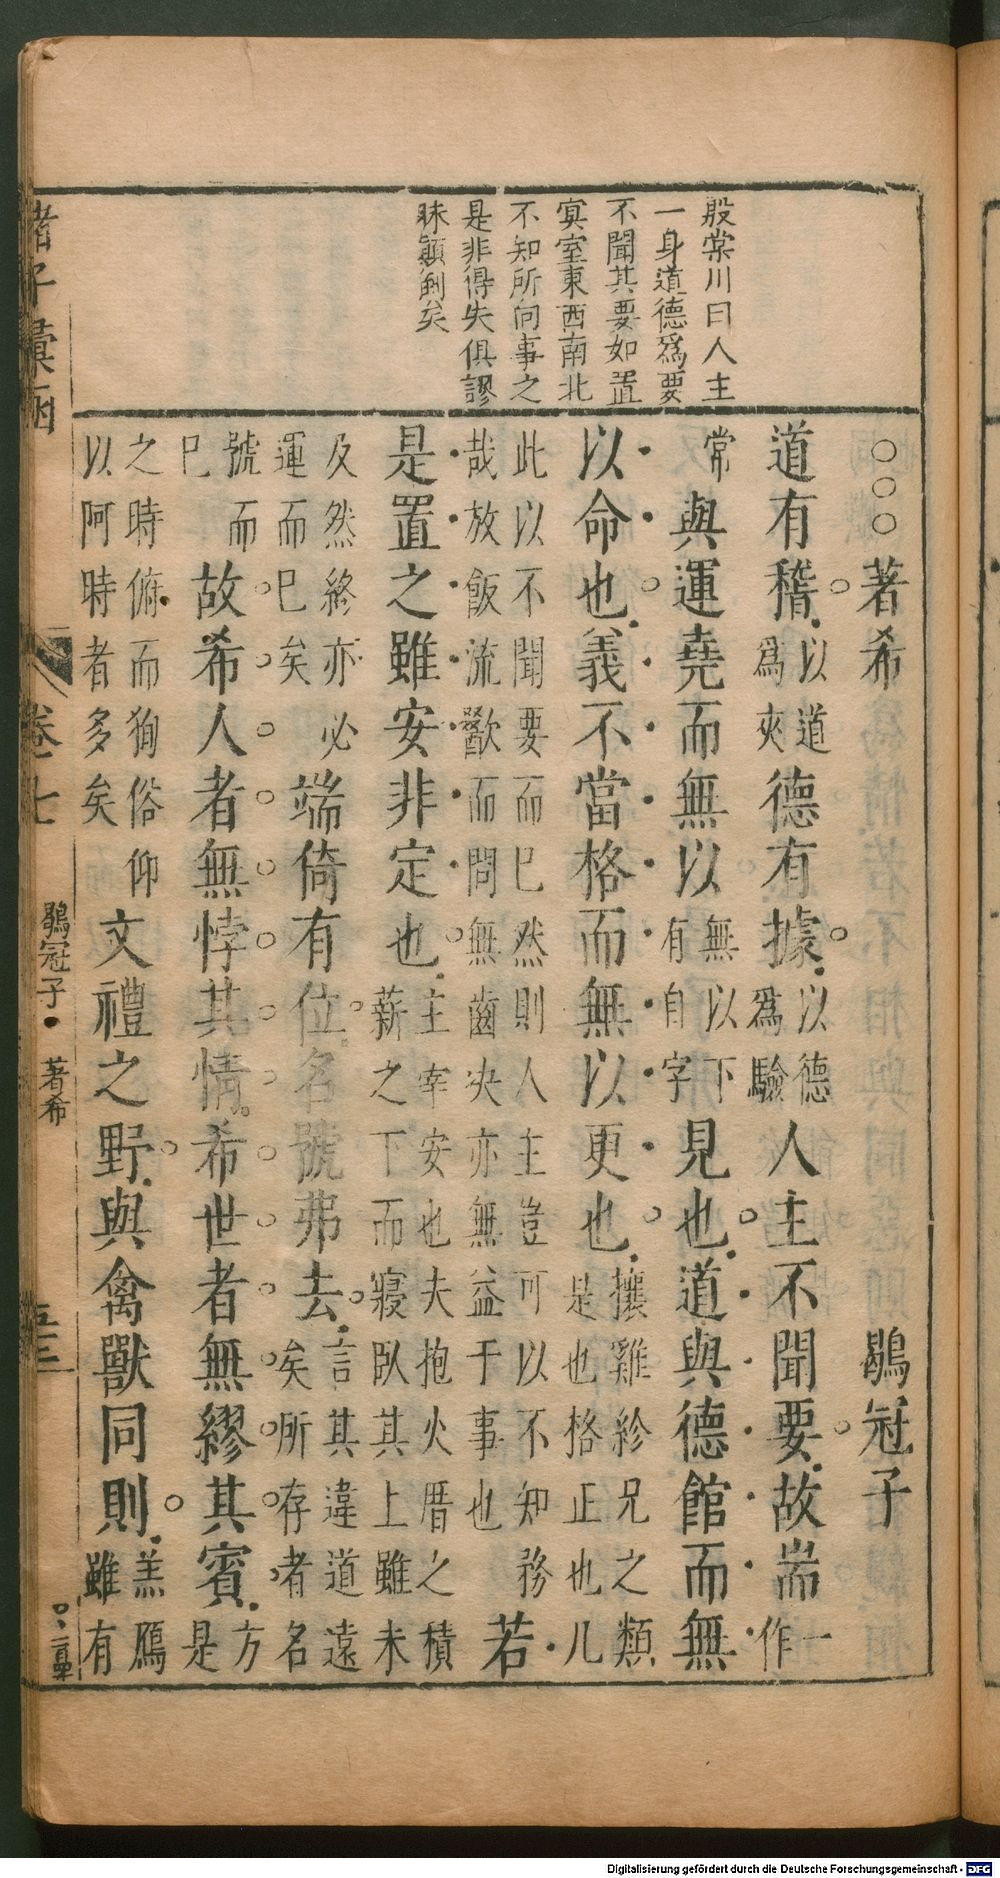 殷棠川曰人主
一身道德爲要
不聞其要如置
冥室東西南北
不知所向事之
是非得失俱謬
昧顛倒矣
○○○著希 鶡冠子
道有稽以道爲夾德有據以德爲驗人主不聞要故耑一作
常與運堯而無以無以下有自字見也道與德館而無
以命也義不當格而無以更也攘雞紾兄之類是也格正也
此以不聞要而已然則人主豈可以不知務哉放飯流歠而問無齒决亦無益于事也若
是置之雖安非定也主宰安也夫抱火厝之積薪之下而寢臥其上雖未
及然終亦必運而已矣端倚有位名號弗去言其違道遠矣所存者名
號而已故希人者無悖其情希世者無繆其賓方是
之時俯而狥俗仰以阿時者多矣文禮之野與禽獸同則羔鴈雖有
諸子彙函 鶡冠子 著希
Digitalisierung gefördert durch die Deutsche Forschungsgemeinschaft - DFG